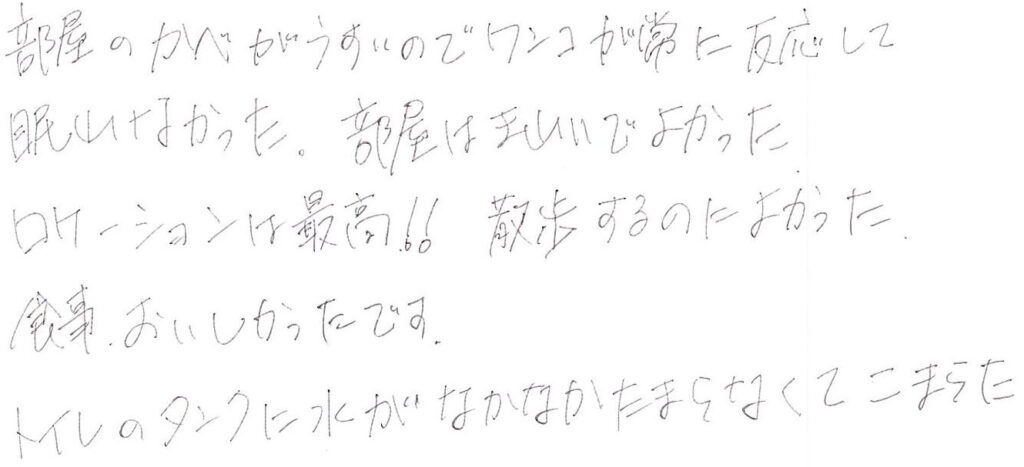 部屋のかべがうすいのでワンコが常に反応して
眠れなかった。部屋はきれいでよかった.
ロケーションは最高!! 散歩するのによかった.
食事.おいしかったです.
トイレのタンクに水がなかなかたまらなくてこまった